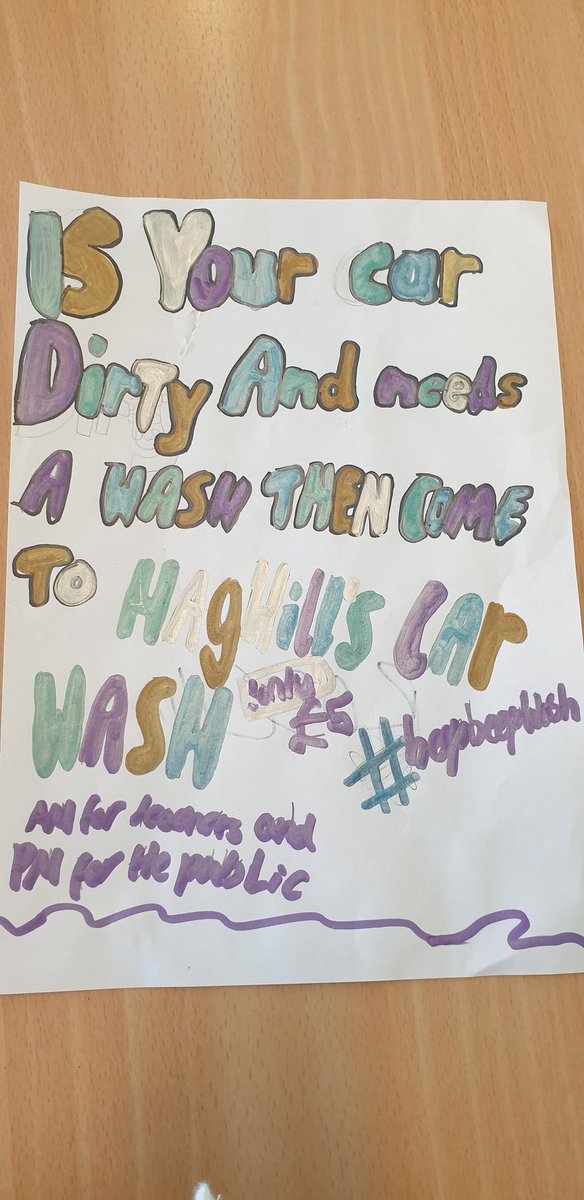 IS Your car
Dirty And needs
A WASH THEN COME
TO HAgHill's CAr
WASH only £5 #beepbeepWish
AM for teachers and
PM for the pubLic